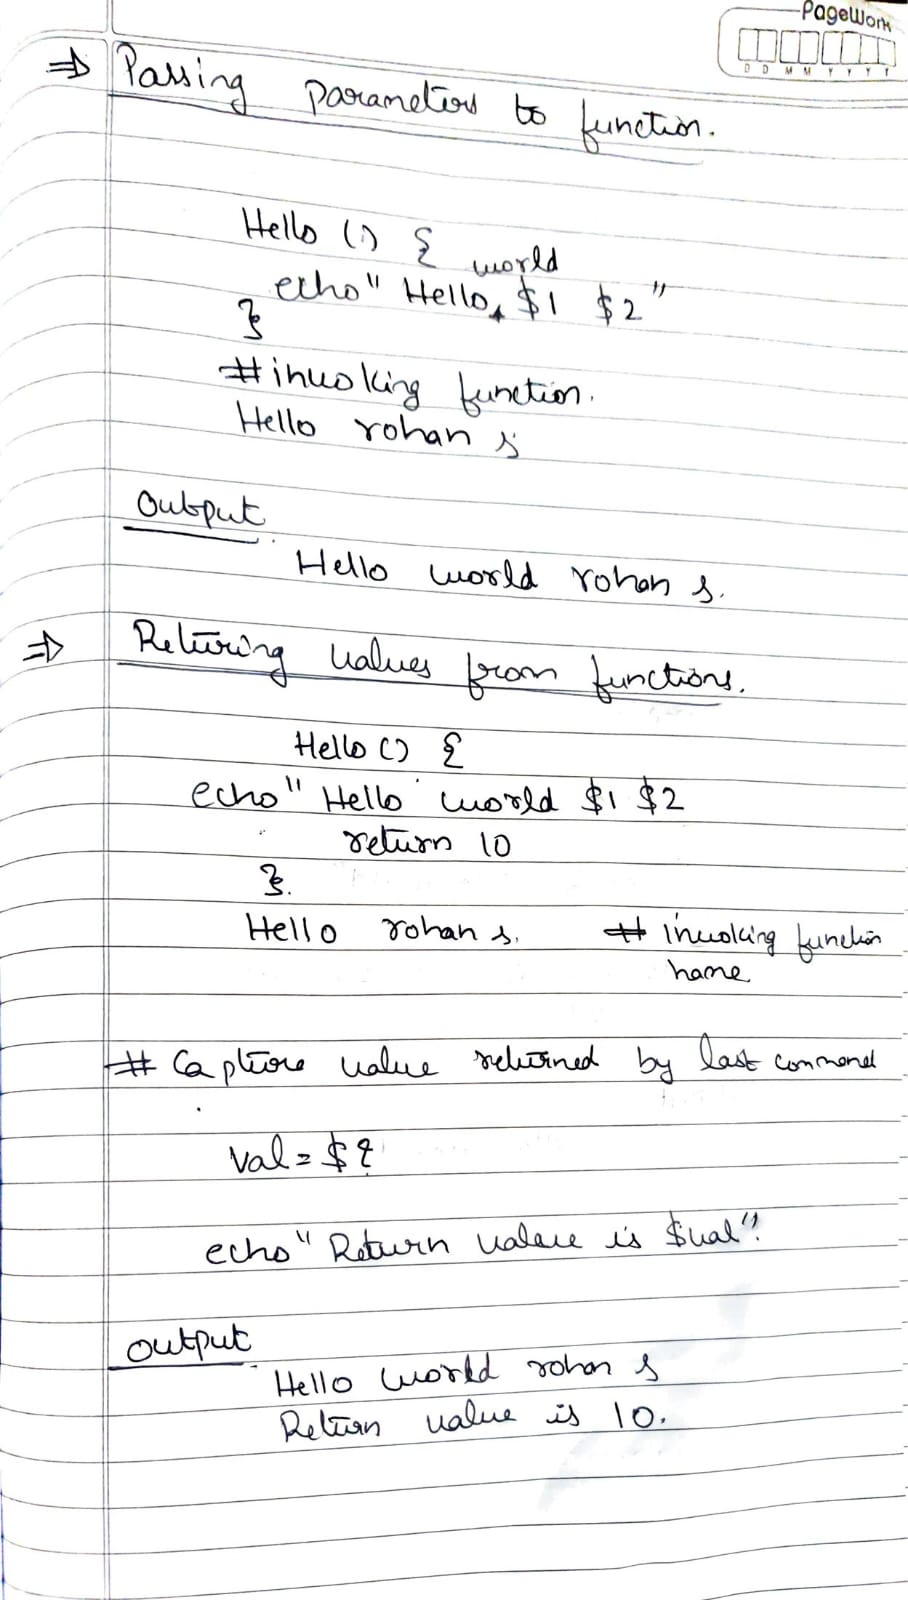 PageWork
D D M M Y Y Y Y
⇒ Passing parameters to function.
Hello () {
world
echo" Hello, $1 $2"
}
#invoking function.
Hello rohan s
Output
Hello world rohan s.
⇒ Returing values from functions.
Hello () {
echo" Hello world $1 $2
return 10
}.
Hello rohan s. # invoking function
name
# Capture value returned by last command
Val = $?
echo" Return value is $val".
Output
Hello world rohan s
Return value is 10.